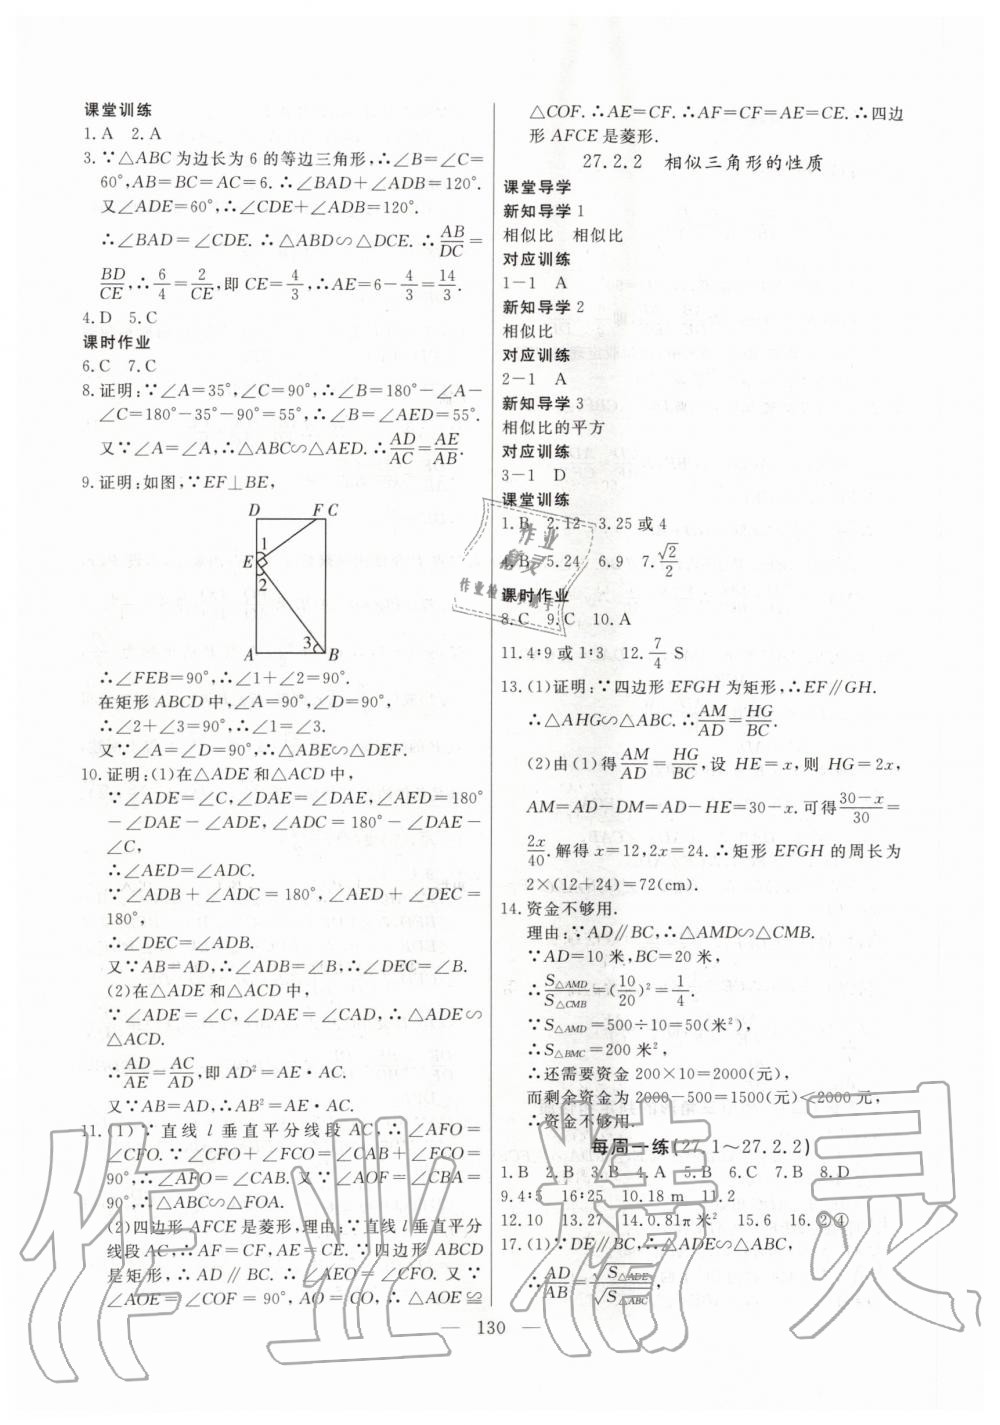 课堂训练
1. A　2. A
3. ∵△ABC为边长为6的等边三角形,∴∠B=∠C=
60°,AB=BC=AC=6.∴∠BAD+∠ADB=120°.
又∠ADE=60°,∴∠CDE+∠ADB=120°.
∴∠BAD=∠CDE.∴△ABD∽△DCE.∴AB/DC=
BD/CE,∴6/4=2/CE,即CE=4/3,∴AE=6-4/3=14/3.
4. D　5. C
课时作业
6. C　7. C
8. 证明:∵∠A=35°,∠C=90°,∴∠B=180°-∠A-
∠C=180°-35°-90°=55°,∴∠B=∠AED=55°.
又∵∠A=∠A,∴△ABC∽△AED.∴AD/AC=AE/AB.
9. 证明:如图,∵EF⊥BE,
D　F C
1
E
2
3
A　B
∴∠FEB=90°,∴∠1+∠2=90°.
在矩形ABCD中,∠A=90°,∠D=90°,
∴∠2+∠3=90°,∴∠1=∠3.
又∵∠A=∠D=90°,∴△ABE∽△DEF.
10. 证明:(1)在△ADE和△ACD中,
∵∠ADE=∠C,∠DAE=∠DAE,∠AED=180°
-∠DAE-∠ADE,∠ADC=180°-∠DAE-
∠C,
∴∠AED=∠ADC.
∵∠ADB+∠ADC=180°,∠AED+∠DEC=
180°,
∴∠DEC=∠ADB.
又∵AB=AD,∴∠ADB=∠B,∴∠DEC=∠B.
(2)在△ADE和△ACD中,
∵∠ADE=∠C,∠DAE=∠CAD,∴△ADE∽
△ACD.
∴AD/AE=AC/AD,即AD²=AE·AC.
又∵AB=AD,∴AB²=AE·AC.
11. (1)∵直线l垂直平分线段AC,∴∠AFO=
∠CFO.∵∠CFO+∠FCO=∠CAB+∠FCO=
90°,∴∠AFO=∠CAB.又∵∠AOF=∠CBA=
90°,∴△ABC∽△FOA.
(2)四边形AFCE是菱形,理由:∵直线l垂直平分
线段AC,∴AF=CF,AE=CE.∵四边形ABCD
是矩形,∴AD∥BC.∴∠AEO=∠CFO.又∵
∠AOE=∠COF=90°,AO=CO,∴△AOE≌
△COF.∴AE=CF.∴AF=CF=AE=CE.∴四边
形AFCE是菱形.
27.2.2　相似三角形的性质
课堂导学
新知导学1
相似比　相似比
对应训练
1-1　A
新知导学2
相似比
对应训练
2-1　A
新知导学3
相似比的平方
对应训练
3-1　D
课堂训练
1. B　2. 12　3. 25或4
4. B　5. 24　6. 9　7. √2/2
课时作业
8. C　9. C　10. A
11. 4∶9或1∶3　12. 7/4 S
13. (1)证明:∵四边形EFGH为矩形,∴EF∥GH.
∴△AHG∽△ABC.∴AM/AD=HG/BC.
(2)由(1)得AM/AD=HG/BC,设HE=x,则HG=2x,
AM=AD-DM=AD-HE=30-x.可得(30-x)/30=
2x/40.解得x=12,2x=24.∴矩形EFGH的周长为
2×(12+24)=72(cm).
14. 资金不够用.
理由:∵AD∥BC,∴△AMD∽△CMB.
∵AD=10米,BC=20米,
∴S△AMD/S△CMB=(10/20)²=1/4.
∵S△AMD=500÷10=50(米²),
∴S△BMC=200米²,
∴还需要资金200×10=2000(元),
而剩余资金为2000-500=1500(元)<2000元,
∴资金不够用.
每周一练(27.1～27.2.2)
1. B　2. B　3. B　4. A　5. B　6. C　7. B　8. D
9. 4∶5　16∶25　10. 18 m　11. 2
12. 10　13. 27　14. 0.81π米²　15. 6　16. ②④
17. (1)∵DE∥BC,∴△ADE∽△ABC,
∴AD/AB=√S△ADE/√S△ABC,
130
作业精灵